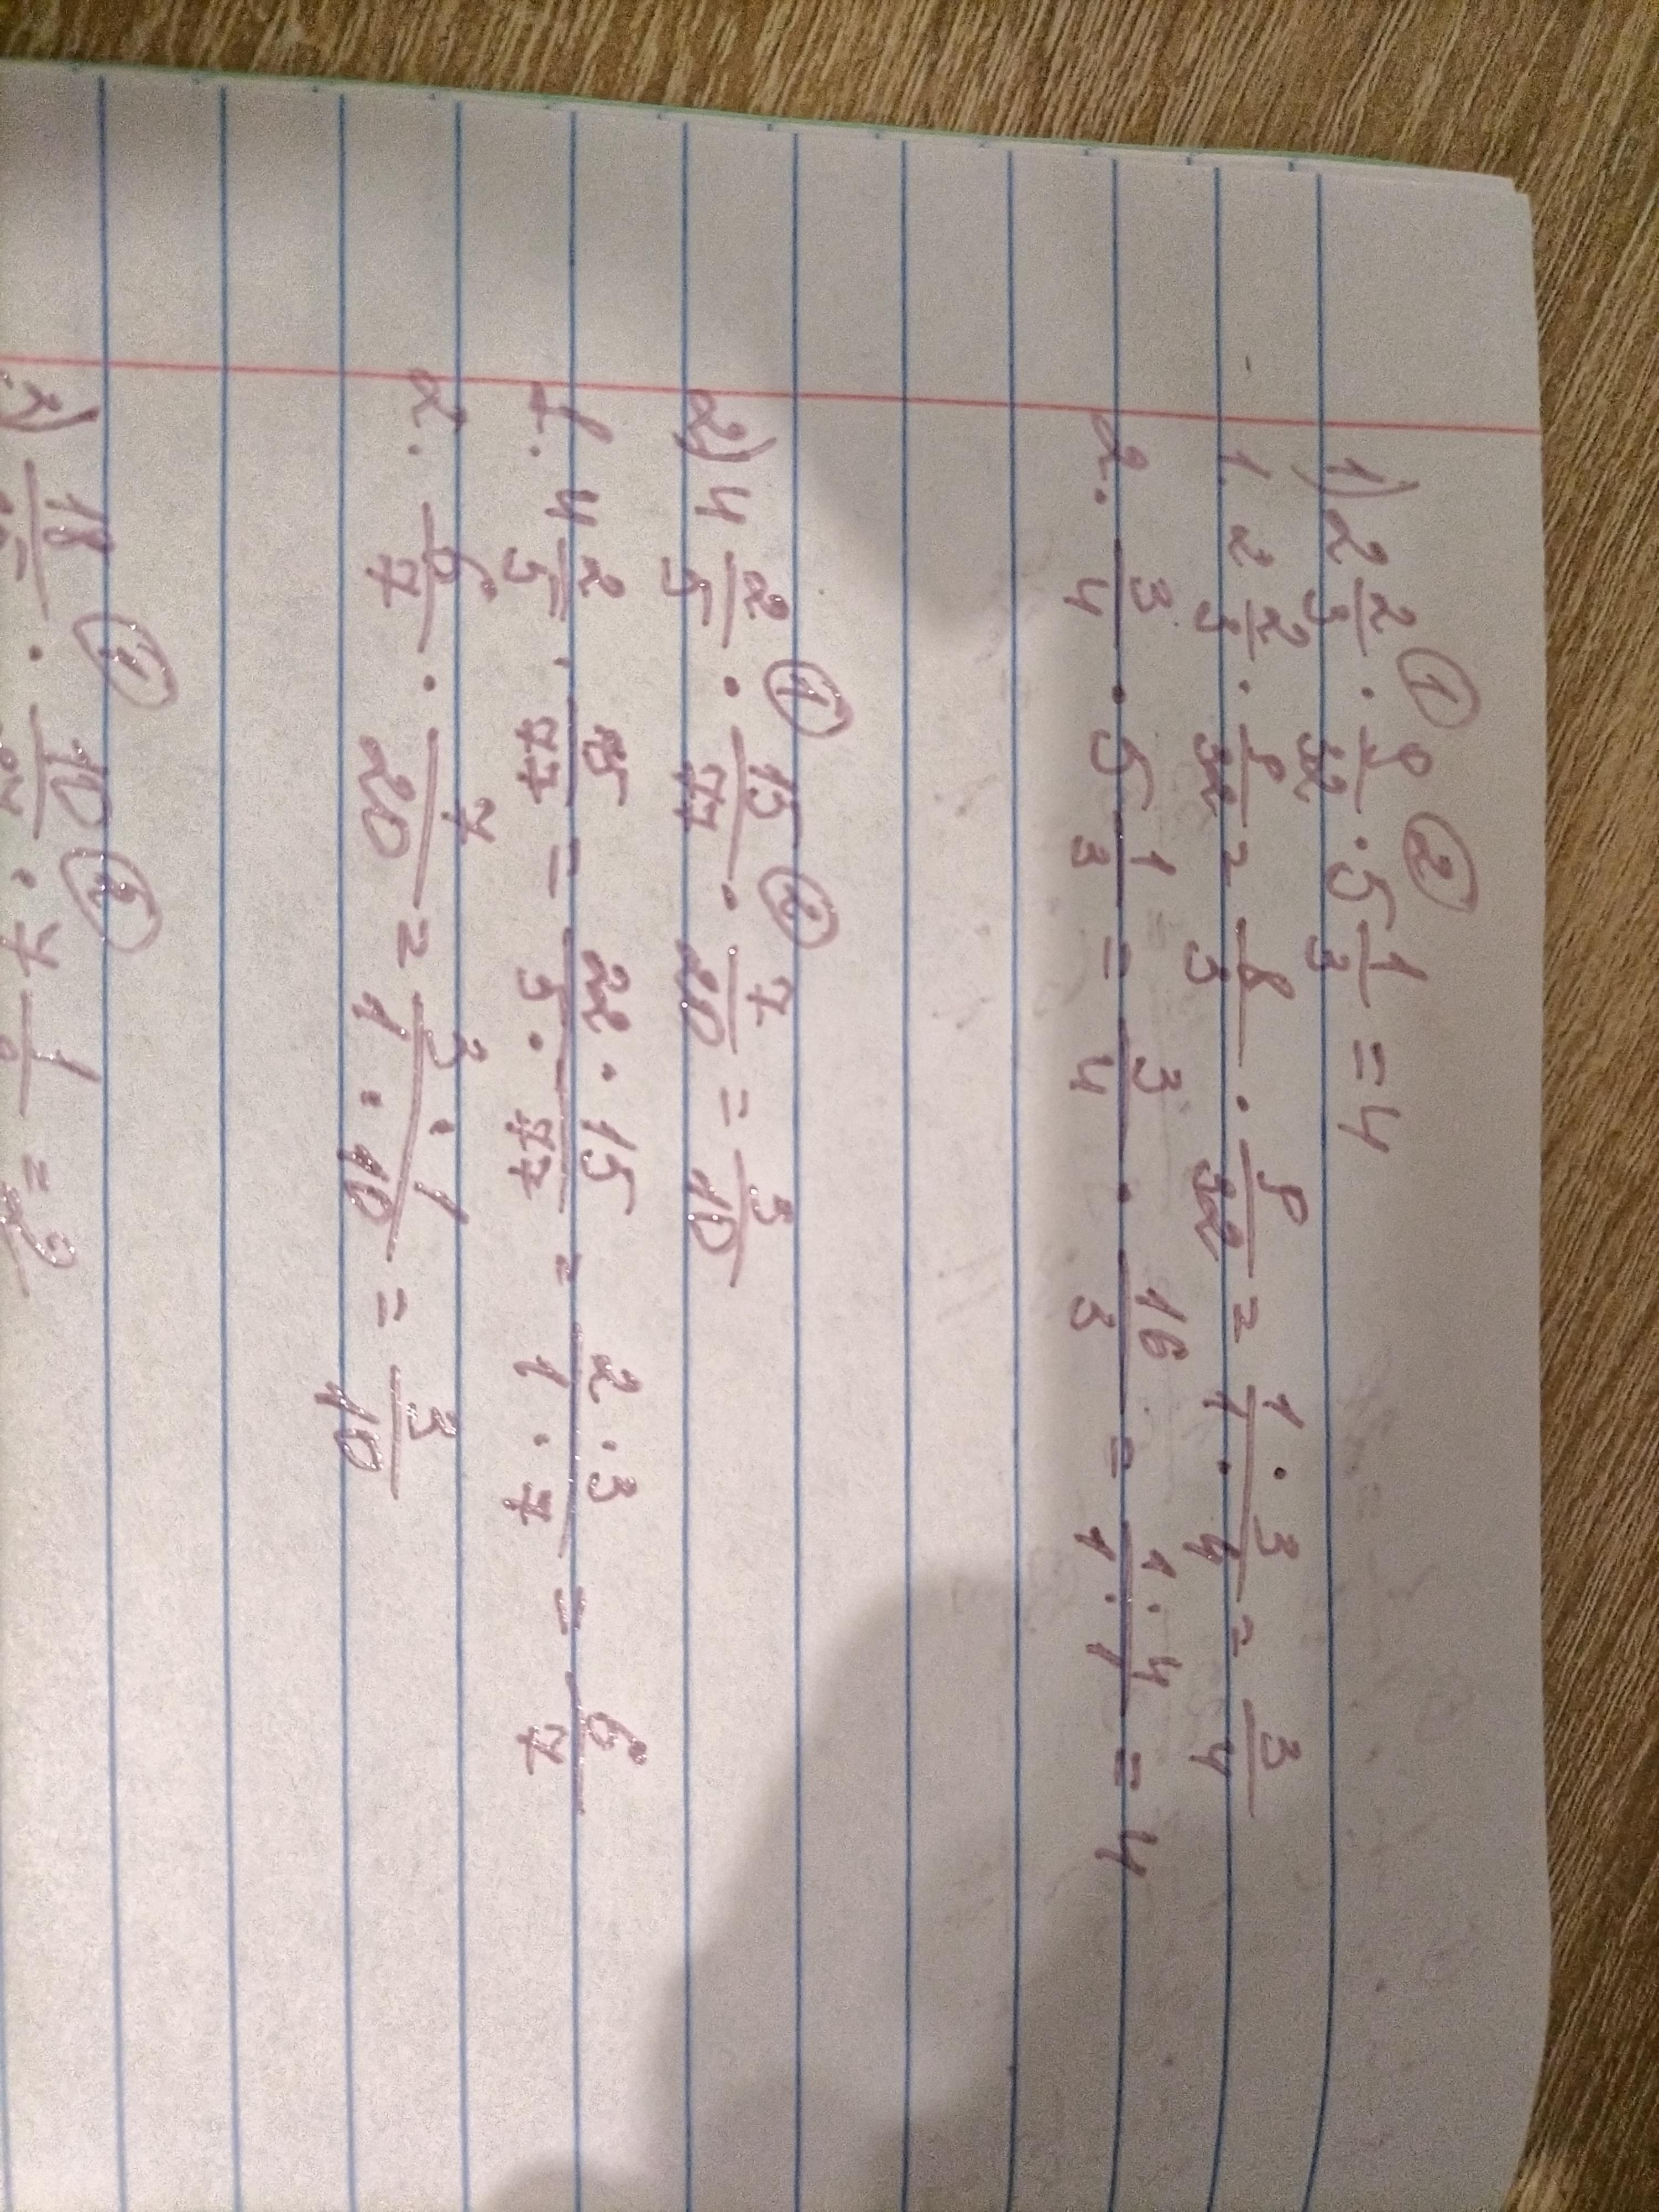 ① ②
1) 2 2/3 · 9/32 · 5 1/3 = 4
1. 2 2/3 · 9/32 = 8/3 · 9/32 = 1·3/1·4 = 3/4
2. 3/4 · 5 1/3 = 3/4 · 16/3 = 1·4/1·1 = 4
① ②
2) 4 2/5 · 15/77 · 7/20 = 3/10
1. 4 2/5 · 15/77 = 22·15/5·77 = 2·3/1·7 = 6/7
2. 6/7 · 7/20 = 3·1/1·10 = 3/10
① ②
3) 18 · 10 ·